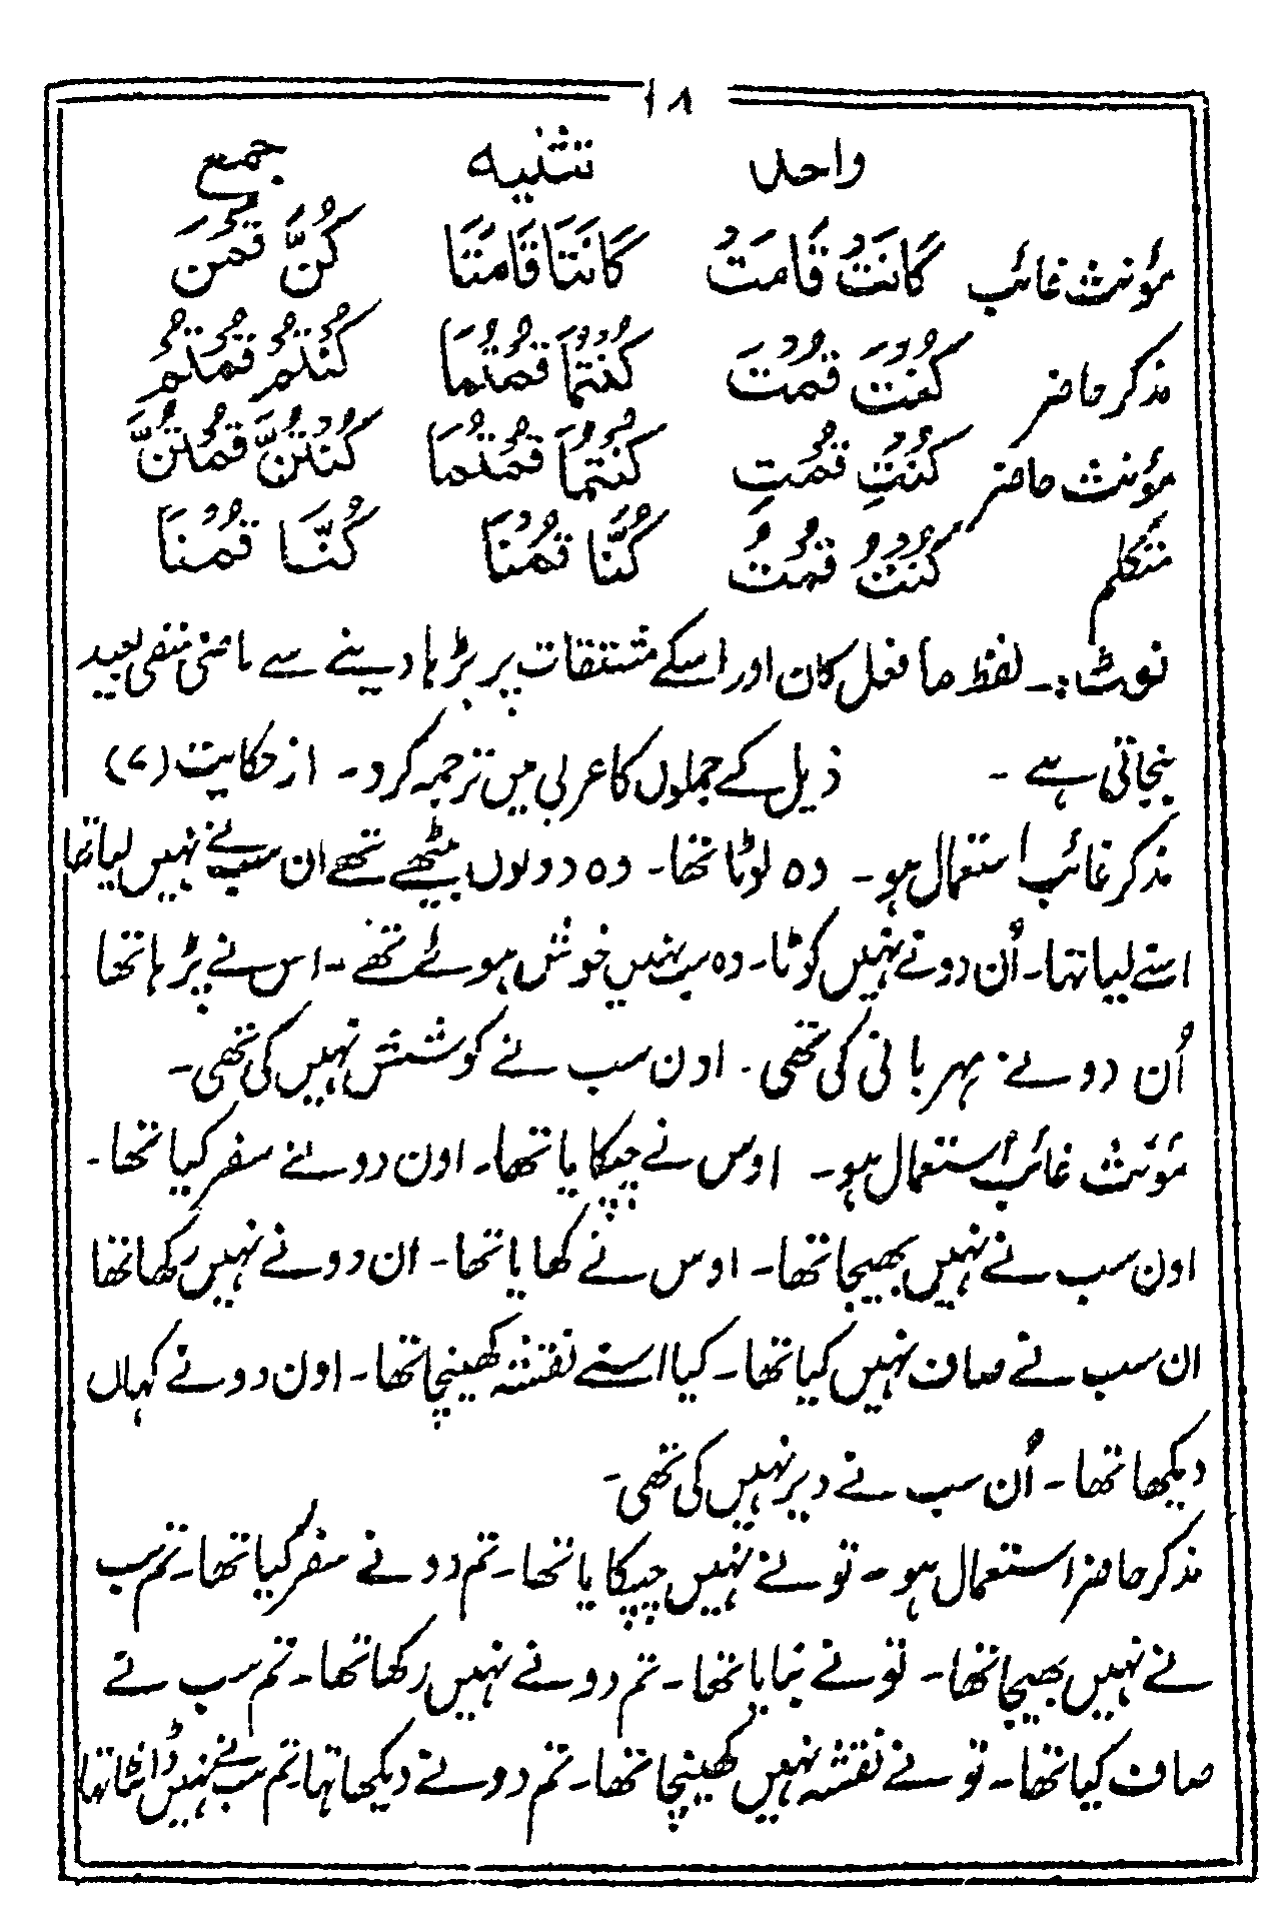 ۱۸
واحد تثنیہ جمع
مؤنث غائب كَانَتْ قَامَتْ كَانَتَا قَامَتَا كُنَّ قُمْنَ
مذکر حاضر كُنْتَ قُمْتَ كُنْتُمَا قُمْتُمَا كُنْتُمْ قُمْتُمْ
مؤنث حاضر كُنْتِ قُمْتِ كُنْتُمَا قُمْتُمَا كُنْتُنَّ قُمْتُنَّ
متکلم كُنْتُ قُمْتُ كُنَّا قُمْنَا كُنَّا قُمْنَا
نوٹ:۔ لفظ ما فعل کان اور اسکے مشتقات پر بڑہا دینے سے ماضی منفی بعید
بنجاتی ہے ۔ ذیل کے جملوں کا عربی میں ترجمہ کرو ۔ از حکایت (۷)
مذکر غائب استعمال ہو ۔ وہ لوٹا تھا ۔ وہ دونوں بیٹھے تھے ان سب نے نہیں لیا تھا
اسنے لیا تہا ۔ اُن دونے نہیں کوٹا ۔ وہ سب نہیں خوش ہوئے تھے ۔ اس نے پڑہا تھا
اُن دونے مہربانی کی تھی ۔ اون سب نے کوشش نہیں کی تھی ۔
مؤنث غائب استعمال ہو ۔ اوس نے چپکایا تھا ۔ اون دونے سفر کیا تھا ۔
اون سب نے نہیں بھیجا تھا ۔ اوس نے کھایا تھا ۔ ان دونے نہیں رکھا تھا
ان سب نے صاف نہیں کیا تھا ۔ کیا اسنے نقشہ کھینچا تھا ۔ اون دونے کہاں
دیکھا تھا ۔ اُن سب نے دیر نہیں کی تھی ۔
مذکر حاضر استعمال ہو ۔ تونے نہیں چپکایا تھا ۔ تم دونے سفر کیا تھا ۔ تم سب
نے نہیں بھیجا تھا ۔ تو نے بنایا تھا ۔ تم دونے نہیں رکھا تھا ۔ تم سب نے
صاف کیا تھا ۔ تو نے نقشہ نہیں کھینچا تھا ۔ تم دونے دیکھا تہا تم سب نے نہیں ڈانٹا تہا